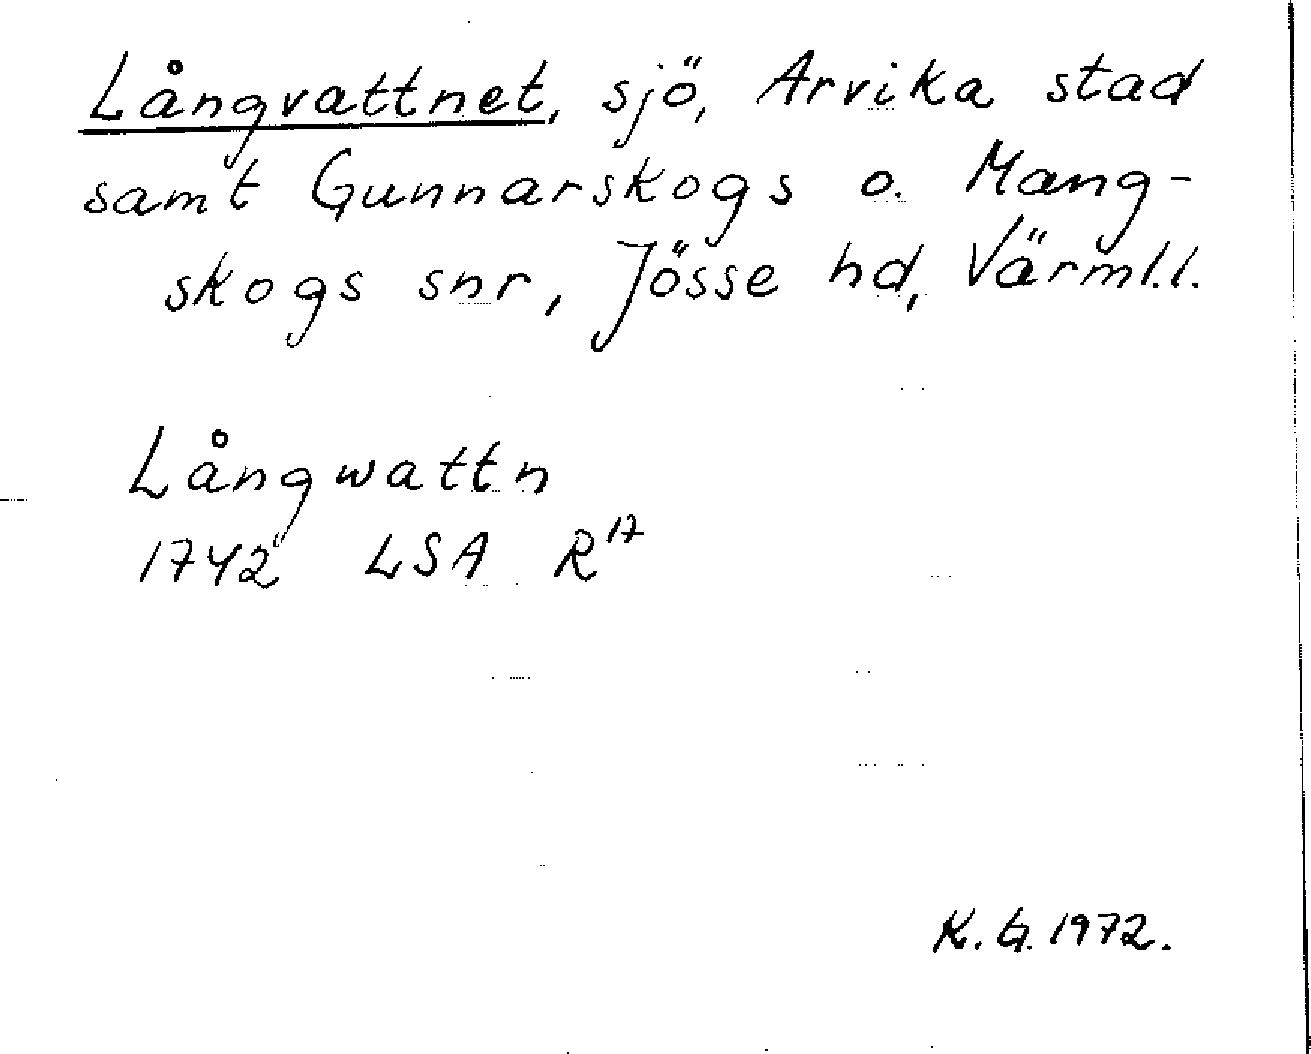 Långvattnet, sjö, Arvika stad
samt Gunnarskogs o. Mang-
skogs snr, Jösse hd, Värml.l.
Långwattn
1742 LSA R¹⁷
K. G. 1972.